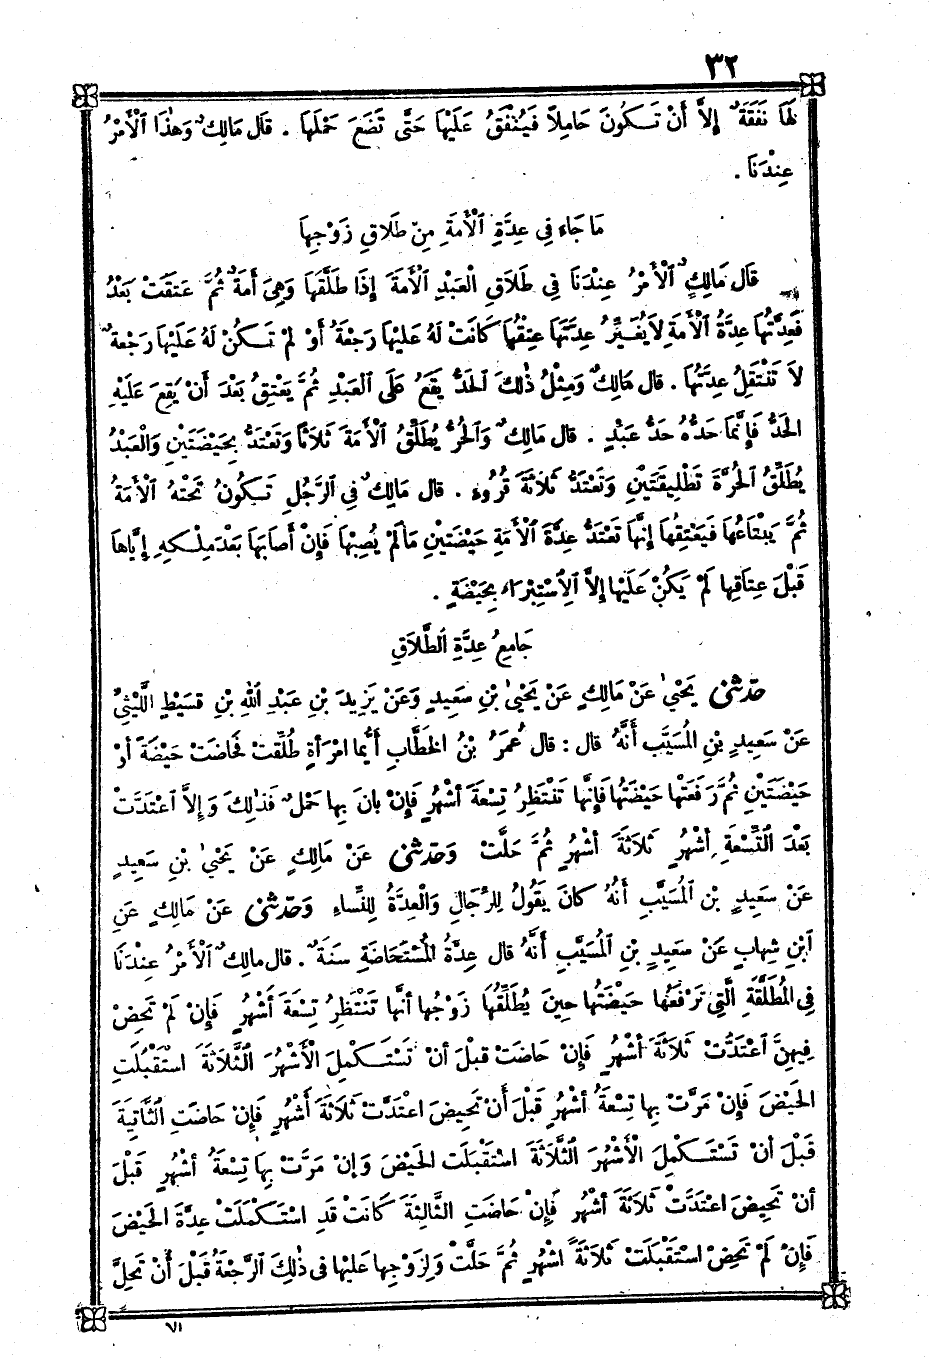 ٣٢
لَهَا نَفَقَةٌ إِلاَّ أَنْ تَكُونَ حَامِلاً فَيُنْفَقُ عَلَيْهَا حَتَّى تَضَعَ حَمْلَهَا . قَالَ مَالِكٌ وَهٰذَا ٱلْأَمْرُ
عِنْدَنَا .
مَا جَاءَ فِى عِدَّةِ ٱلْأَمَةِ مِنْ طَلَاقِ زَوْجِهَا
قَالَ مَالِكٌ ٱلْأَمْرُ عِنْدَنَا فِى طَلَاقِ الْعَبْدِ ٱلْأَمَةَ إِذَا طَلَّقَهَا وَهِىَ أَمَةٌ ثُمَّ عَتَقَتْ بَعْدُ
فَعِدَّتُهَا عِدَّةُ ٱلْأَمَةِ لَا يُغَيِّرُ عِدَّتَهَا عِتْقُهَا كَانَتْ لَهُ عَلَيْهَا رَجْعَةٌ أَوْ لَمْ تَكُنْ لَهُ عَلَيْهَا رَجْعَةٌ
لَا تَنْتَقِلُ عِدَّتُهَا . قال مَالِكٌ وَمِثْلُ ذٰلِكَ ٱلْحَدُّ يَقَعُ عَلَى ٱلْعَبْدِ ثُمَّ يَعْتِقُ بَعْدَ أَنْ يَقَعَ عَلَيْهِ
الحَدُّ فَإِنَّمَا حَدُّهُ حَدُّ عَبْدٍ . قال مَالِكٌ وَٱلْحُرُّ يُطَلِّقُ ٱلْأَمَةَ ثَلَاثًا وَتَعْتَدُّ بِحَيْضَتَيْنِ وَالْعَبْدُ
يُطَلِّقُ ٱلْحُرَّةَ تَطْلِيقَتَيْنِ وَتَعْتَدُّ ثَلَاثَةَ قُرُوءٍ . قال مَالِكٌ فِى ٱلرَّجُلِ تَكُونُ تَحْتَهُ ٱلْأَمَةُ
ثُمَّ يَبْتَاعُهَا فَيَعْتِقُهَا إِنَّهَا تَعْتَدُّ عِدَّةَ ٱلْأَمَةِ حَيْضَتَيْنِ مَالَمْ يُصِبْهَا فَإِنْ أَصَابَهَا بَعْدَ مِلْكِهِ إِيَّاهَا
قَبْلَ عِتَاقِهَا لَمْ يَكُنْ عَلَيْهَا إِلاَّ ٱلِٱسْتِبْرَاءُ بِحَيْضَةٍ .
جَامِعُ عِدَّةِ ٱلطَّلَاقِ
حَدَّثَنِى يَحْيَىٰ عَنْ مَالِكٍ عَنْ يَحْيَىٰ بْنِ سَعِيدٍ وَعَنْ يَزِيدَ بْنِ عَبْدِ ٱللّٰهِ بْنِ قسَيْطٍ اللَّيْثِىِّ
عَنْ سَعِيدِ بْنِ الْمُسَيَّبِ أَنَّهُ قال : قال عُمَرُ بْنُ الْخَطَّابِ أَيُّمَا امْرَأَةٍ طُلِّقَتْ فَحَاضَتْ حَيْضَةً أَوْ
حَيْضَتَيْنِ ثُمَّ رَفَعَتْهَا حَيْضَتُهَا فَإِنَّهَا تَنْتَظِرُ تِسْعَةَ أَشْهُرٍ فَإِنْ بَانَ بِهَا حَمْلٌ فَذٰلِكَ وَإِلاَّ ٱعْتَدَّتْ
بَعْدَ ٱلتِّسْعَةِ أَشْهُرٍ ثَلَاثَةَ أَشْهُرٍ ثُمَّ حَلَّتْ وَحَدَّثَنِى عَنْ مَالِكٍ عَنْ يَحْيَىٰ بْنِ سَعِيدٍ
عَنْ سَعِيدِ بْنِ ٱلْمُسَيَّبِ أَنَّهُ كَانَ يَقُولُ لِلرِّجَالِ وَالْعِدَّةُ لِلنِّسَاءِ وَحَدَّثَنِى عَنْ مَالِكٍ عَنِ
ٱبْنِ شِهَابٍ عَنْ سَعِيدِ بْنِ ٱلْمُسَيَّبِ أَنَّهُ قال عِدَّةُ الْمُسْتَحَاضَةِ سَنَةٌ . قال مالِكٌ ٱلْأَمْرُ عِنْدَنَا
فِى الْمُطَلَّقَةِ الَّتِى تَرْفَعُهَا حَيْضَتُهَا حِينَ يُطَلِّقُهَا زَوْجُهَا أَنَّهَا تَنْتَظِرُ تِسْعَةَ أَشْهُرٍ فَإِنْ لَمْ تَحِضْ
فِيهِنَّ ٱعْتَدَّتْ ثَلَاثَةَ أَشْهُرٍ فَإِنْ حَاضَتْ قَبْلَ أَنْ تَسْتَكْمِلَ الْأَشْهُرَ ٱلثَّلَاثَةَ اسْتَقْبَلَتِ
الحَيْضَ فَإِنْ مَرَّتْ بِهَا تِسْعَةُ أَشْهُرٍ قَبْلَ أَنْ تَحِيضَ اعْتَدَّتْ ثَلَاثَةَ أَشْهُرٍ فَإِنْ حَاضَتِ ٱلثَّانِيَةَ
قَبْلَ أَنْ تَسْتَكْمِلَ الْأَشْهُرَ ٱلثَّلَاثَةَ اسْتَقْبَلَتِ الحَيْضَ وَإِنْ مَرَّتْ بِهَا تِسْعَةُ أَشْهُرٍ قَبْلَ
أَنْ تَحِيضَ اعْتَدَّتْ ثَلَاثَةَ أَشْهُرٍ فَإِنْ حَاضَتِ الثَّالِثَةَ كَانَتْ قَدِ اسْتَكْمَلَتْ عِدَّةَ الحَيْضِ
فَإِنْ لَمْ تَحِضْ اسْتَقْبَلَتْ ثَلَاثَةَ أَشْهُرٍ ثُمَّ حَلَّتْ وَلِزَوْجِهَا عَلَيْهَا فِى ذٰلِكَ ٱلرَّجْعَةُ قَبْلَ أَنْ تَحِلَّ